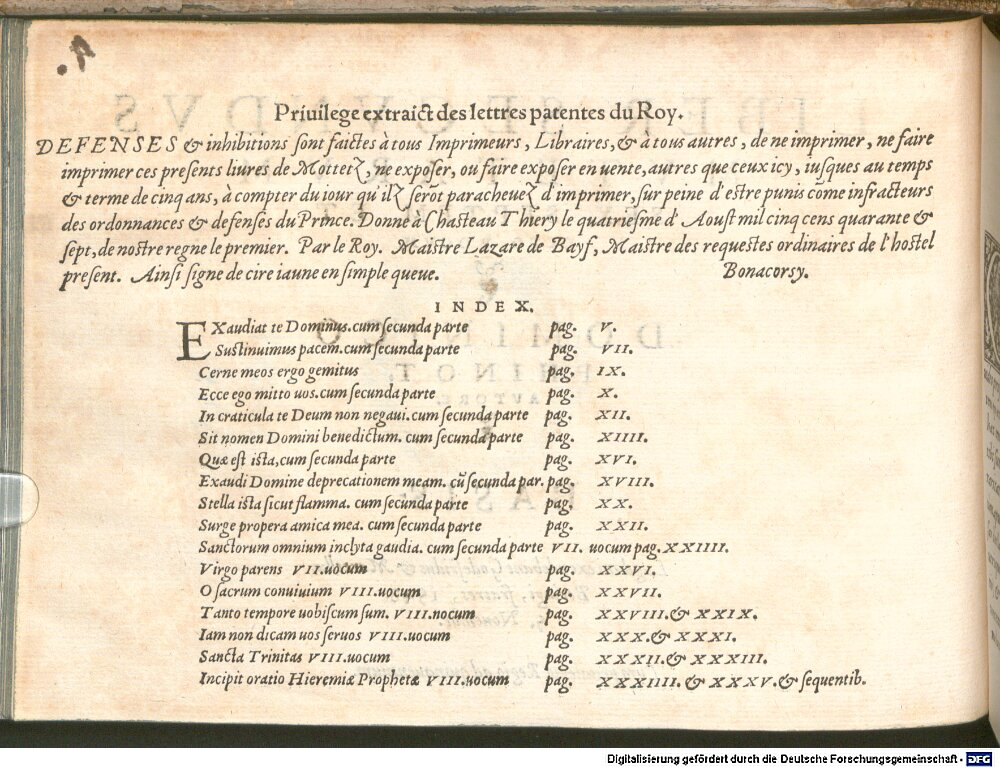 Priuilege extraict des lettres patentes du Roy.
DEFENSES & inhibitions sont faictes à tous Imprimeurs, Libraires, & à tous autres, de ne imprimer, ne faire
imprimer ces presents liures de Mottetz, ne exposer, ou faire exposer en vente, autres que ceux icy, iusques au temps
& terme de cinq ans, à compter du iour qu'ilz serõt paracheuez d'imprimer, sur peine d'estre punis cõme infracteurs
des ordonnances & defenses du Prince. Donne à Chasteau Thiery le quatriesme d'Aoust mil cinq cens quarante &
sept, de nostre regne le premier. Par le Roy. Maistre Lazare de Bayf, Maistre des requestes ordinaires de l'hostel
present. Ainsi signe de cire iaune en simple queue. Bonacorsy.
INDEX.
EXaudiat te Dominus. cum secunda parte pag. V.
Sustinuimus pacem. cum secunda parte pag. VII.
Cerne meos ergo gemitus pag. IX.
Ecce ego mitto uos. cum secunda parte pag. X.
In craticula te Deum non negaui. cum secunda parte pag. XII.
Sit nomen Domini benedictum. cum secunda parte pag. XIIII.
Quæ est ista, cum secunda parte pag. XVI.
Exaudi Domine deprecationem meam. cũ secunda par. pag. XVIII.
Stella ista sicut flamma. cum secunda parte pag. XX.
Surge propera amica mea. cum secunda parte pag. XXII.
Sanctorum omnium inclyta gaudia. cum secunda parte VII. uocum pag. XXIIII.
Virgo parens VII. uocum pag. XXVI.
O sacrum conuiuium VIII. uocum pag. XXVII.
Tanto tempore uobiscum sum. VIII. nocum pag. XXVIII. & XXIX.
Iam non dicam uos seruos VIII. uocum pag. XXX. & XXXI.
Sancta Trinitas VIII. uocum pag. XXXII. & XXXIII.
Incipit oratio Hieremiæ Prophetæ VIII. uocum pag. XXXIIII. & XXXV. & sequentib.
Digitalisierung gefördert durch die Deutsche Forschungsgemeinschaft - DFG